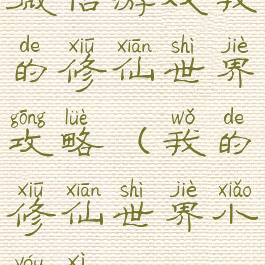 微信游戏我
de xiū xiān shì jiè
的修仙世界
gōng lüè wǒ de
攻略（我的
xiū xiān shì jiè xiǎo
修仙世界小
yóu xì